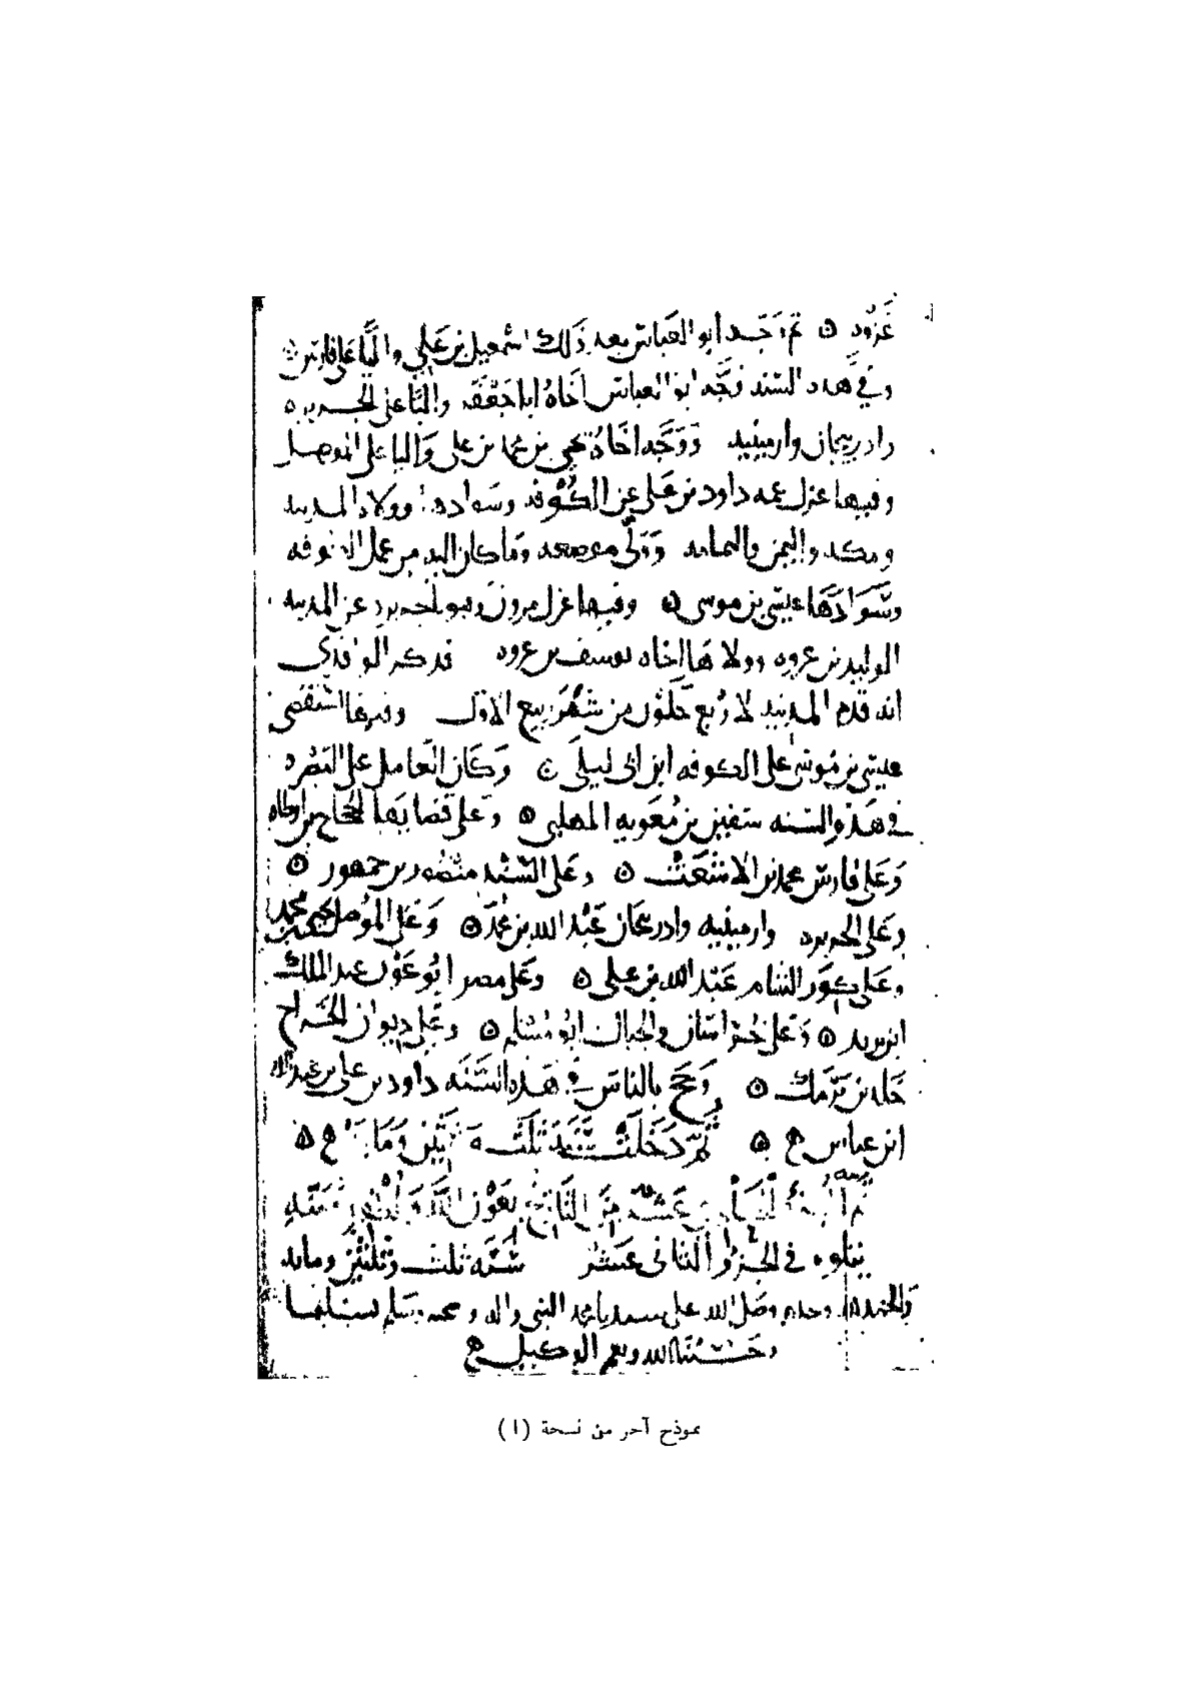 غزوه ۞ ثم وجه ابو العباس بعد ذلك اسمعيل بن علي واليا على فارس ۞
وفي هذه السنه وجه ابو العباس اخاه ابا جعفر واليا على الجزيره ۞
واذربيجان وارمينيه ووجه اخاه يحيى بن محمد بن علي واليا على الموصل
وفيها عزل عمه داود بن علي عن الكوفه وسوادها وولاه المدينه
ومكه واليمن واليمامه وولى موضعه وما كان اليه من عمل الكوفه
وسوادها عيسى بن موسى ۞ وفيها عزل مرون وهو بالجزيره عن المدينه
الوليد بن عروه وولاها اخاه يوسف بن عروه فذكر الواقدي
انه قدم المدينه لاربع خلون من شهر ربيع الاول وفيها استقضى
عيسى بن موسى على الكوفه ابن ابي ليلى ۞ وكان العامل على البصره
في هذه السنه سفين بن معويه المهلبي ۞ وعلى قضايها الحجاج بن ارطاه
وعلى فارس محمد بن الاشعث ۞ وعلى السند منصور بن جمهور ۞
وعلى الجزيره وارمينيه واذربيجان عبد الله بن محمد ۞ وعلى الموصل يحيى بن محمد
وعلى كور الشام عبد الله بن علي ۞ وعلى مصر ابو عون عبد الملك
ابن يزيد ۞ وعلى خراسان والجبال ابو مسلم ۞ وعلى ديوان الخراج
خلد بن برمك ۞ وحج بالناس في هذه السنه داود بن علي بن عبد الله
ابن عباس ۞ ثم دخلت سنه ثلث وثلثين ومايه ۞
تم الجزء الحادي عشر من التاريخ بعون الله
يتلوه في الجزو الثاني عشر سنه ثلث وثلثين ومايه
والحمد لله وحده وصلى الله على سيدنا محمد النبي واله وصحبه وسلم تسليما
وحسبنا الله ونعم الوكيل
نموذج آخر من نسخة (ا)